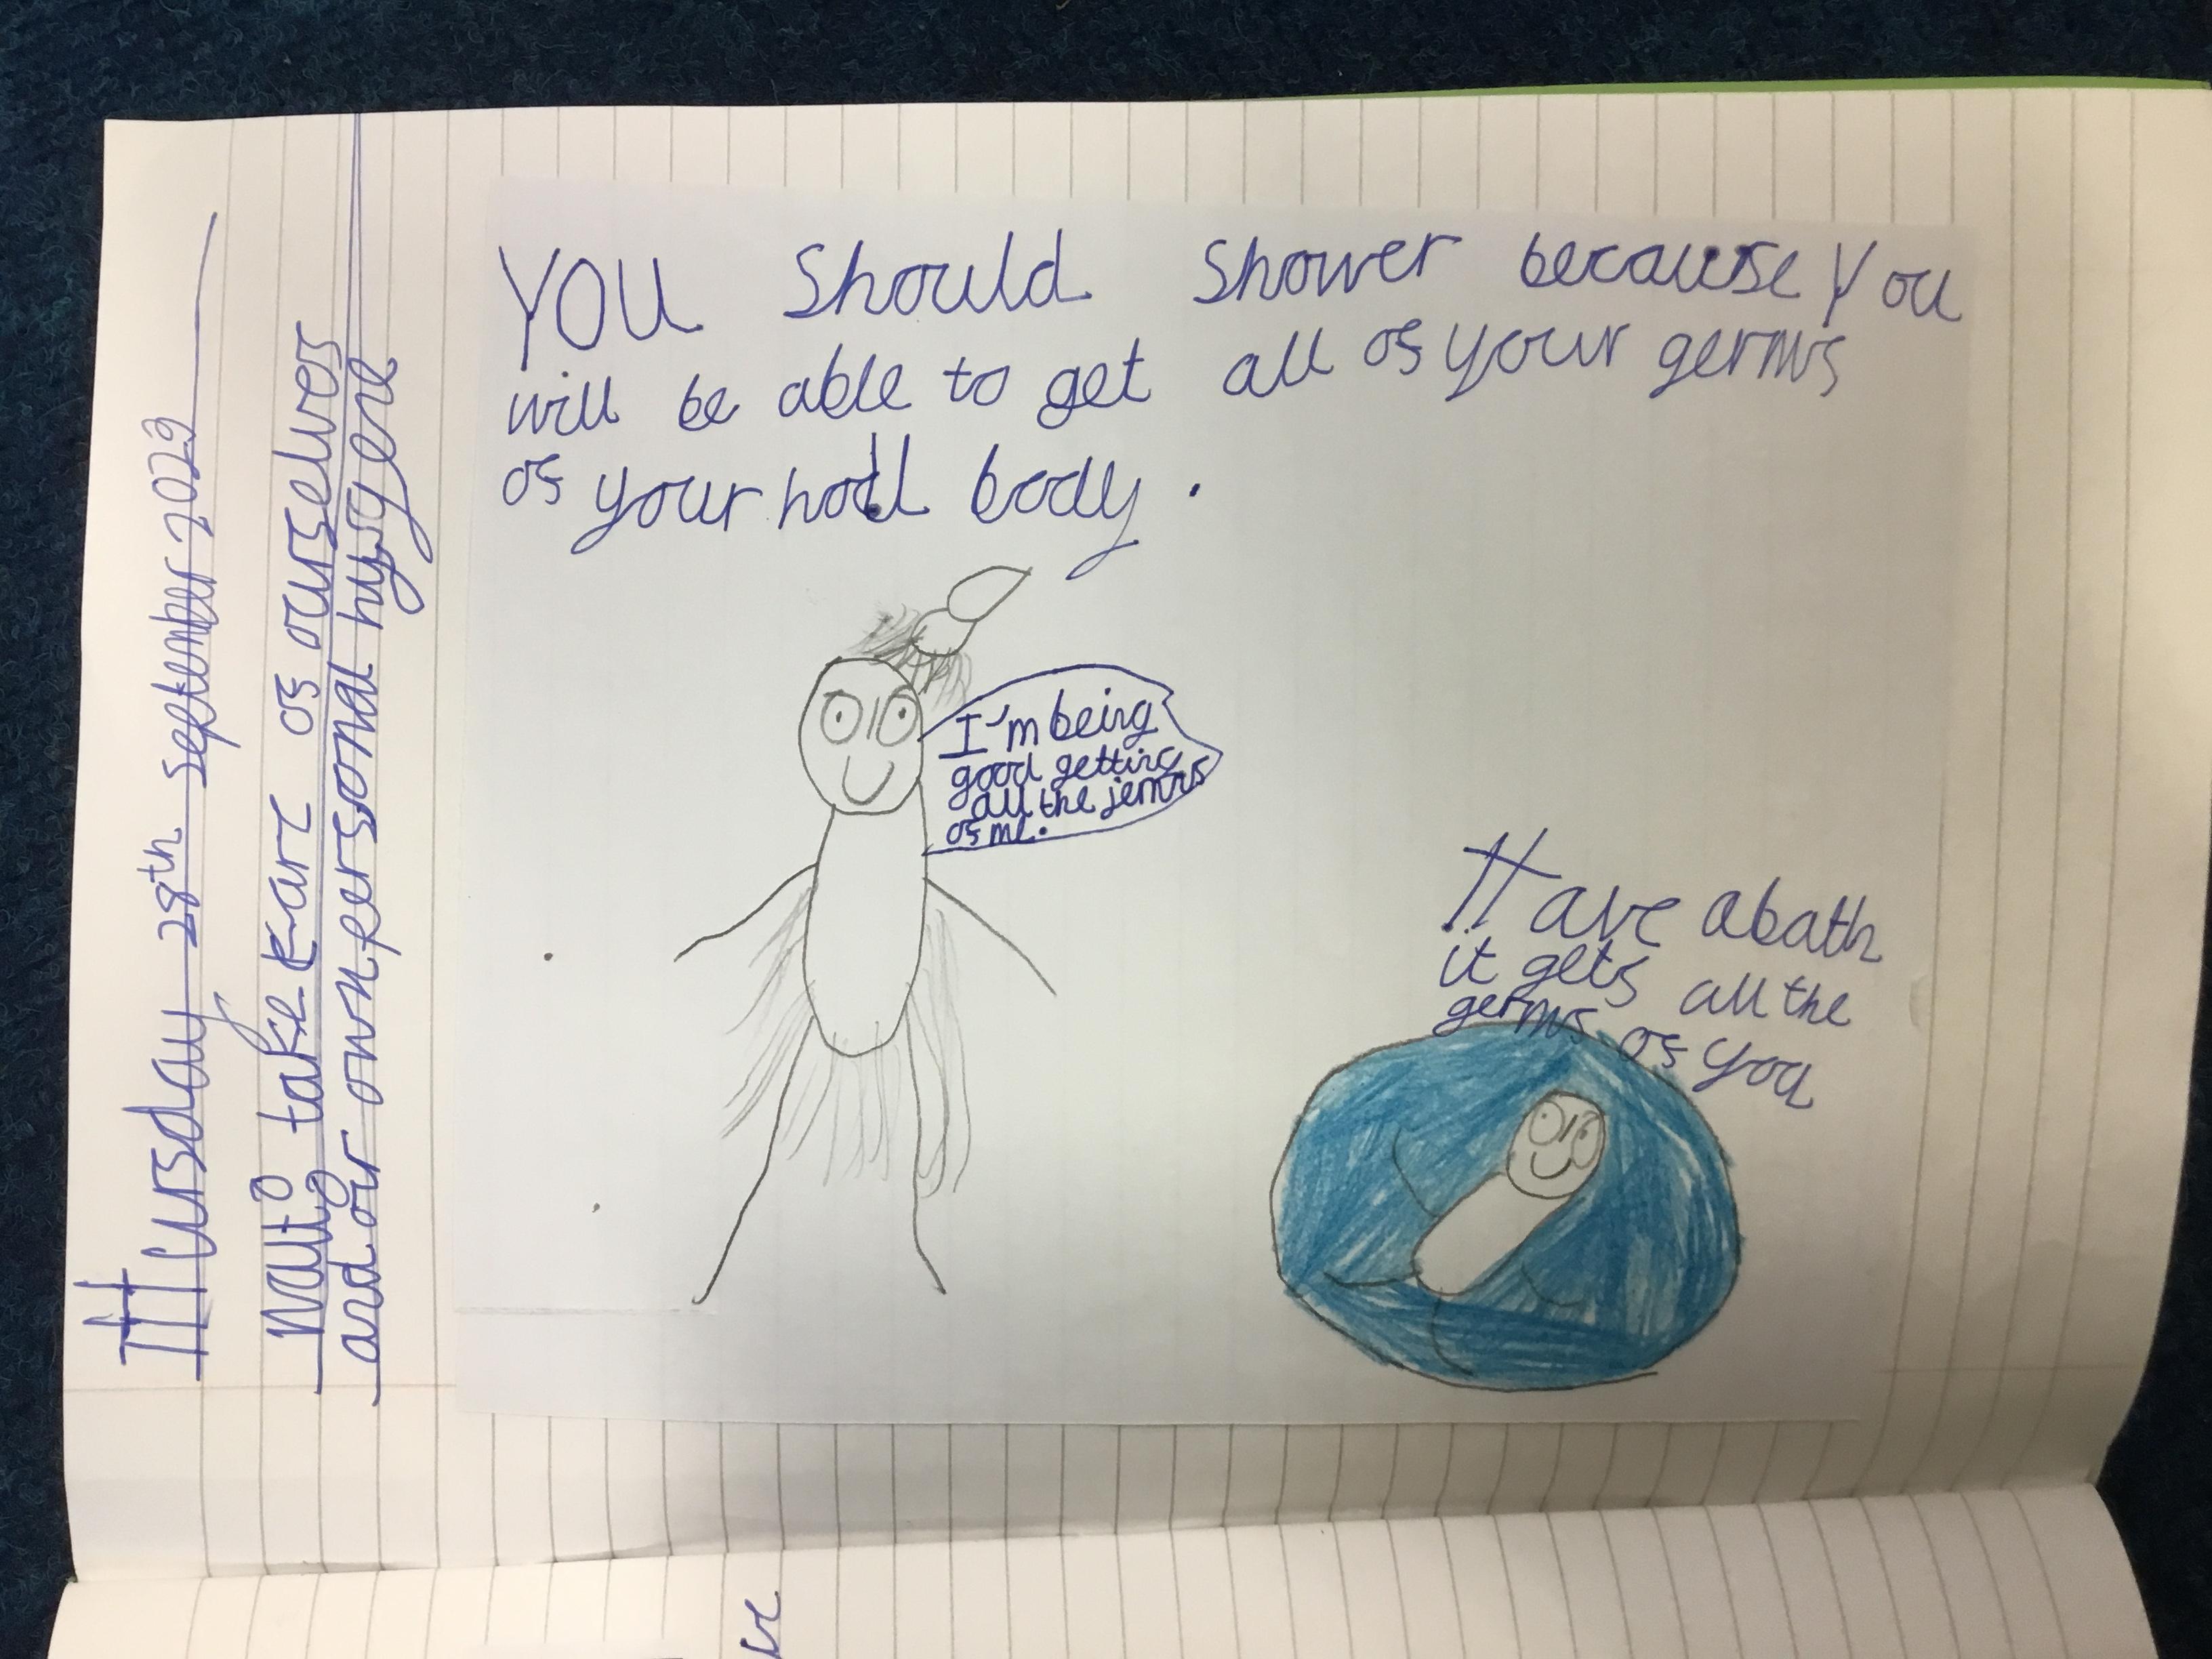 Thursday 28th September 2023
to take care os ourselves
and our own personal hygene
You should shower because you
will be able to get all os your germs
os your holl body.
I'm being
good getting
all the jemms
os me.
Have a bath
it gets all the
germs os you